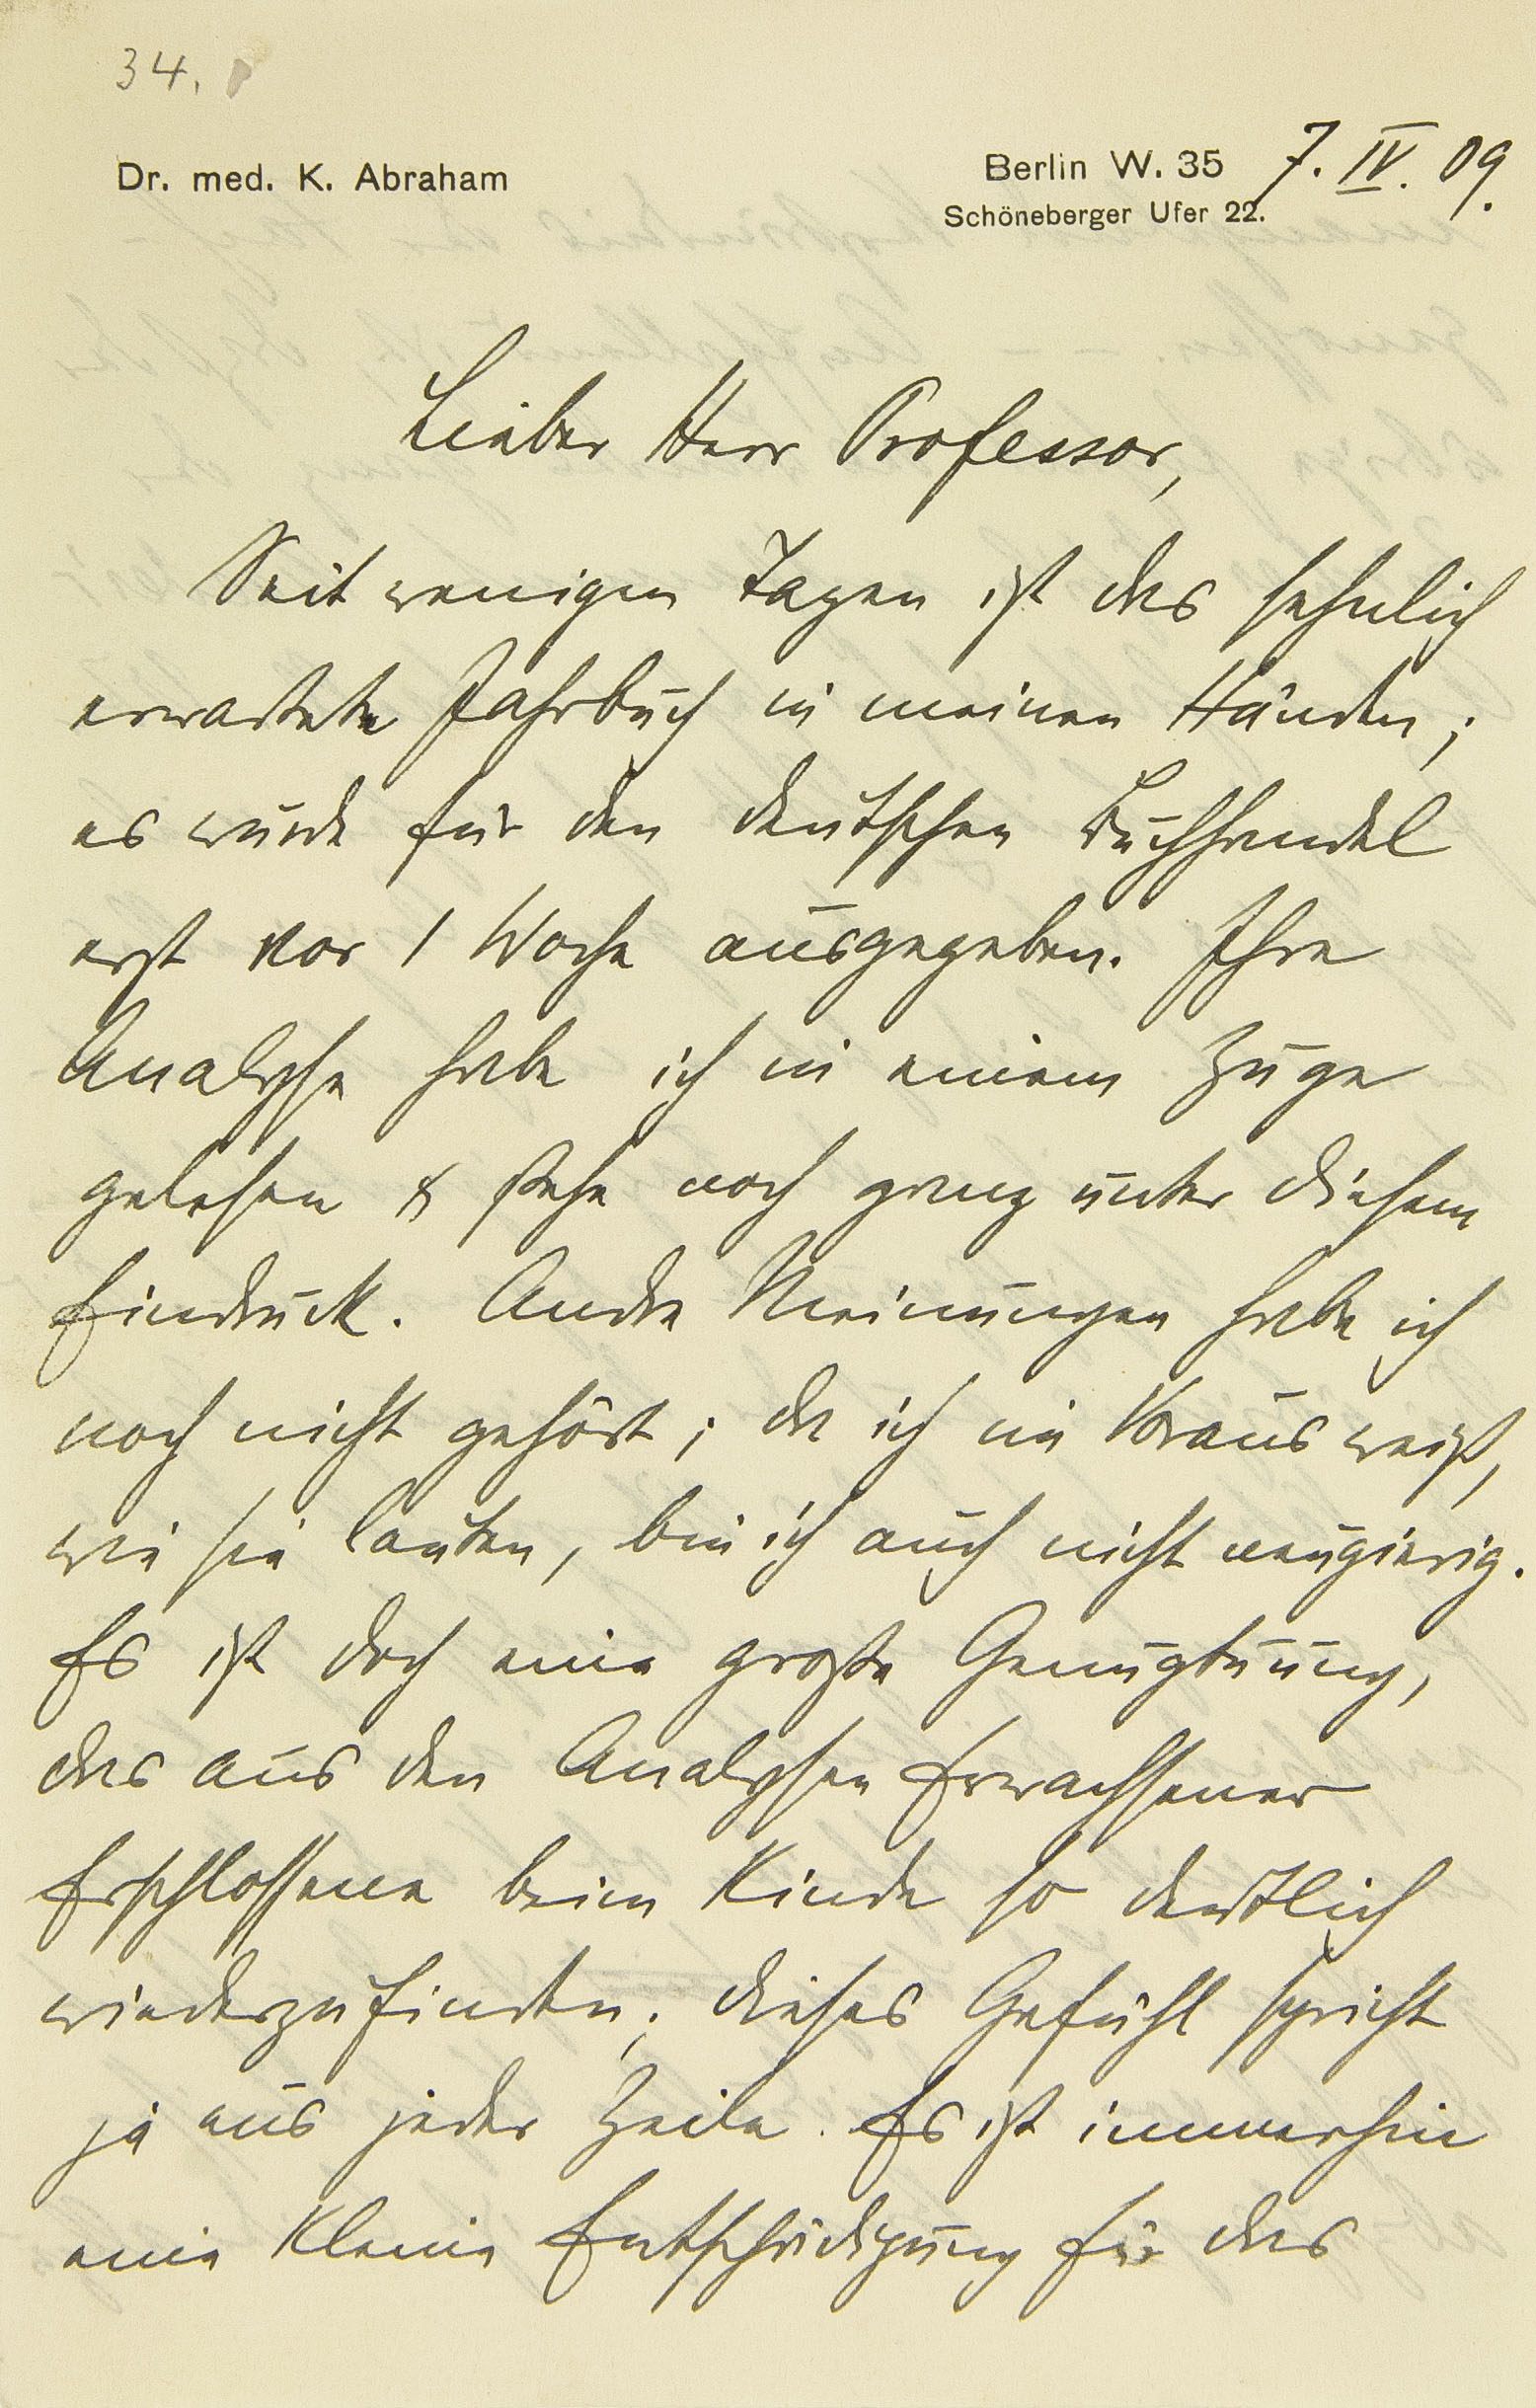 34.
Dr. med. K. Abraham
Berlin W. 35 7. IV. 09.
Schöneberger Ufer 22.
Lieber Herr Professor,
Seit wenigen Tagen ist das sehnlich
erwartete Jahrbuch in meinen Händen;
es wurde für den deutschen Buchhandel
erst vor 1 Woche ausgegeben. Ihre
Analyse habe ich in einem Zuge
gelesen & stehe noch ganz unter diesem
Eindruck. Andre Meinungen habe ich
noch nicht gehört; da ich im Voraus weiß,
wie sie lauten, bin ich auch nicht neugierig.
Es ist doch eine große Genugtuung,
das aus den Analysen Erwachsener
Erschlossene beim Kinde so deutlich
wiederzufinden; dieses Gefühl spricht
ja aus jeder Zeile. Es ist immerhin
eine kleine Entschädigung für das